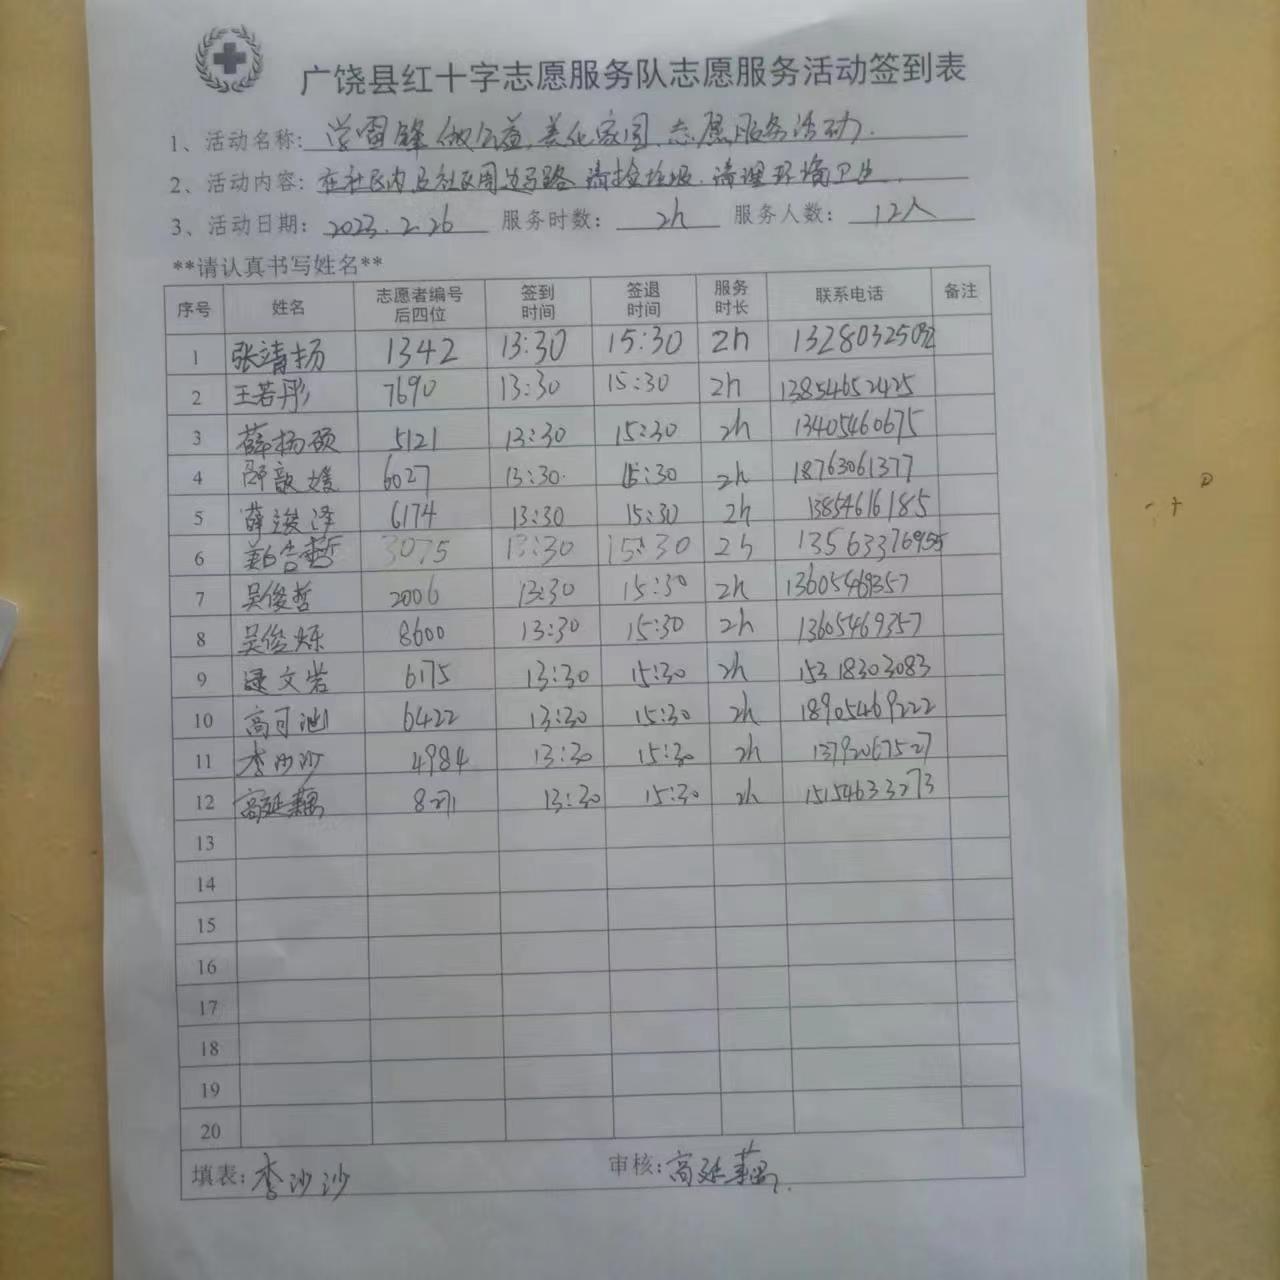 广饶县红十字志愿服务队志愿服务活动签到表
1、活动名称: 学雷锋 做公益,美化家园,志愿服务活动.
2、活动内容: 在社区内及社区周边马路 清捡垃圾.清理环境卫生.
3、活动日期: 2023.2.26 服务时数: 2h 服务人数: 12人
**请认真书写姓名**
序号 姓名 志愿者编号后四位 签到时间 签退时间 服务时长 联系电话 备注
1 张靖扬 1342 13:30 15:30 2h
2 王若彤 7690 13:30 15:30 2h 13854652425
3 薛杨硕 5121 13:30 15:30 2h 13405460675
4 邵歆媛 6027 13:30 15:30 2h 18763061377
5 薛浚泽 6174 13:30 15:30 2h 13854616185
6 3075 13:30 15:30 2h 13563376955
7 吴俊哲 2006 13:30 15:30 2h 13605469357
8 吴俊烁 8600 13:30 15:30 2h 13605469357
9 文岩 6175 13:30 15:30 2h 15318303083
10 高可 6422 13:30 15:30 2h 18905469222
11 李沙沙 4984 13:30 15:30 2h 13792067527
12 高延藕 13:30 15:30 2h 15154633273
13
14
15
16
17
18
19
20
填表: 李沙沙 审核: 高延藕.